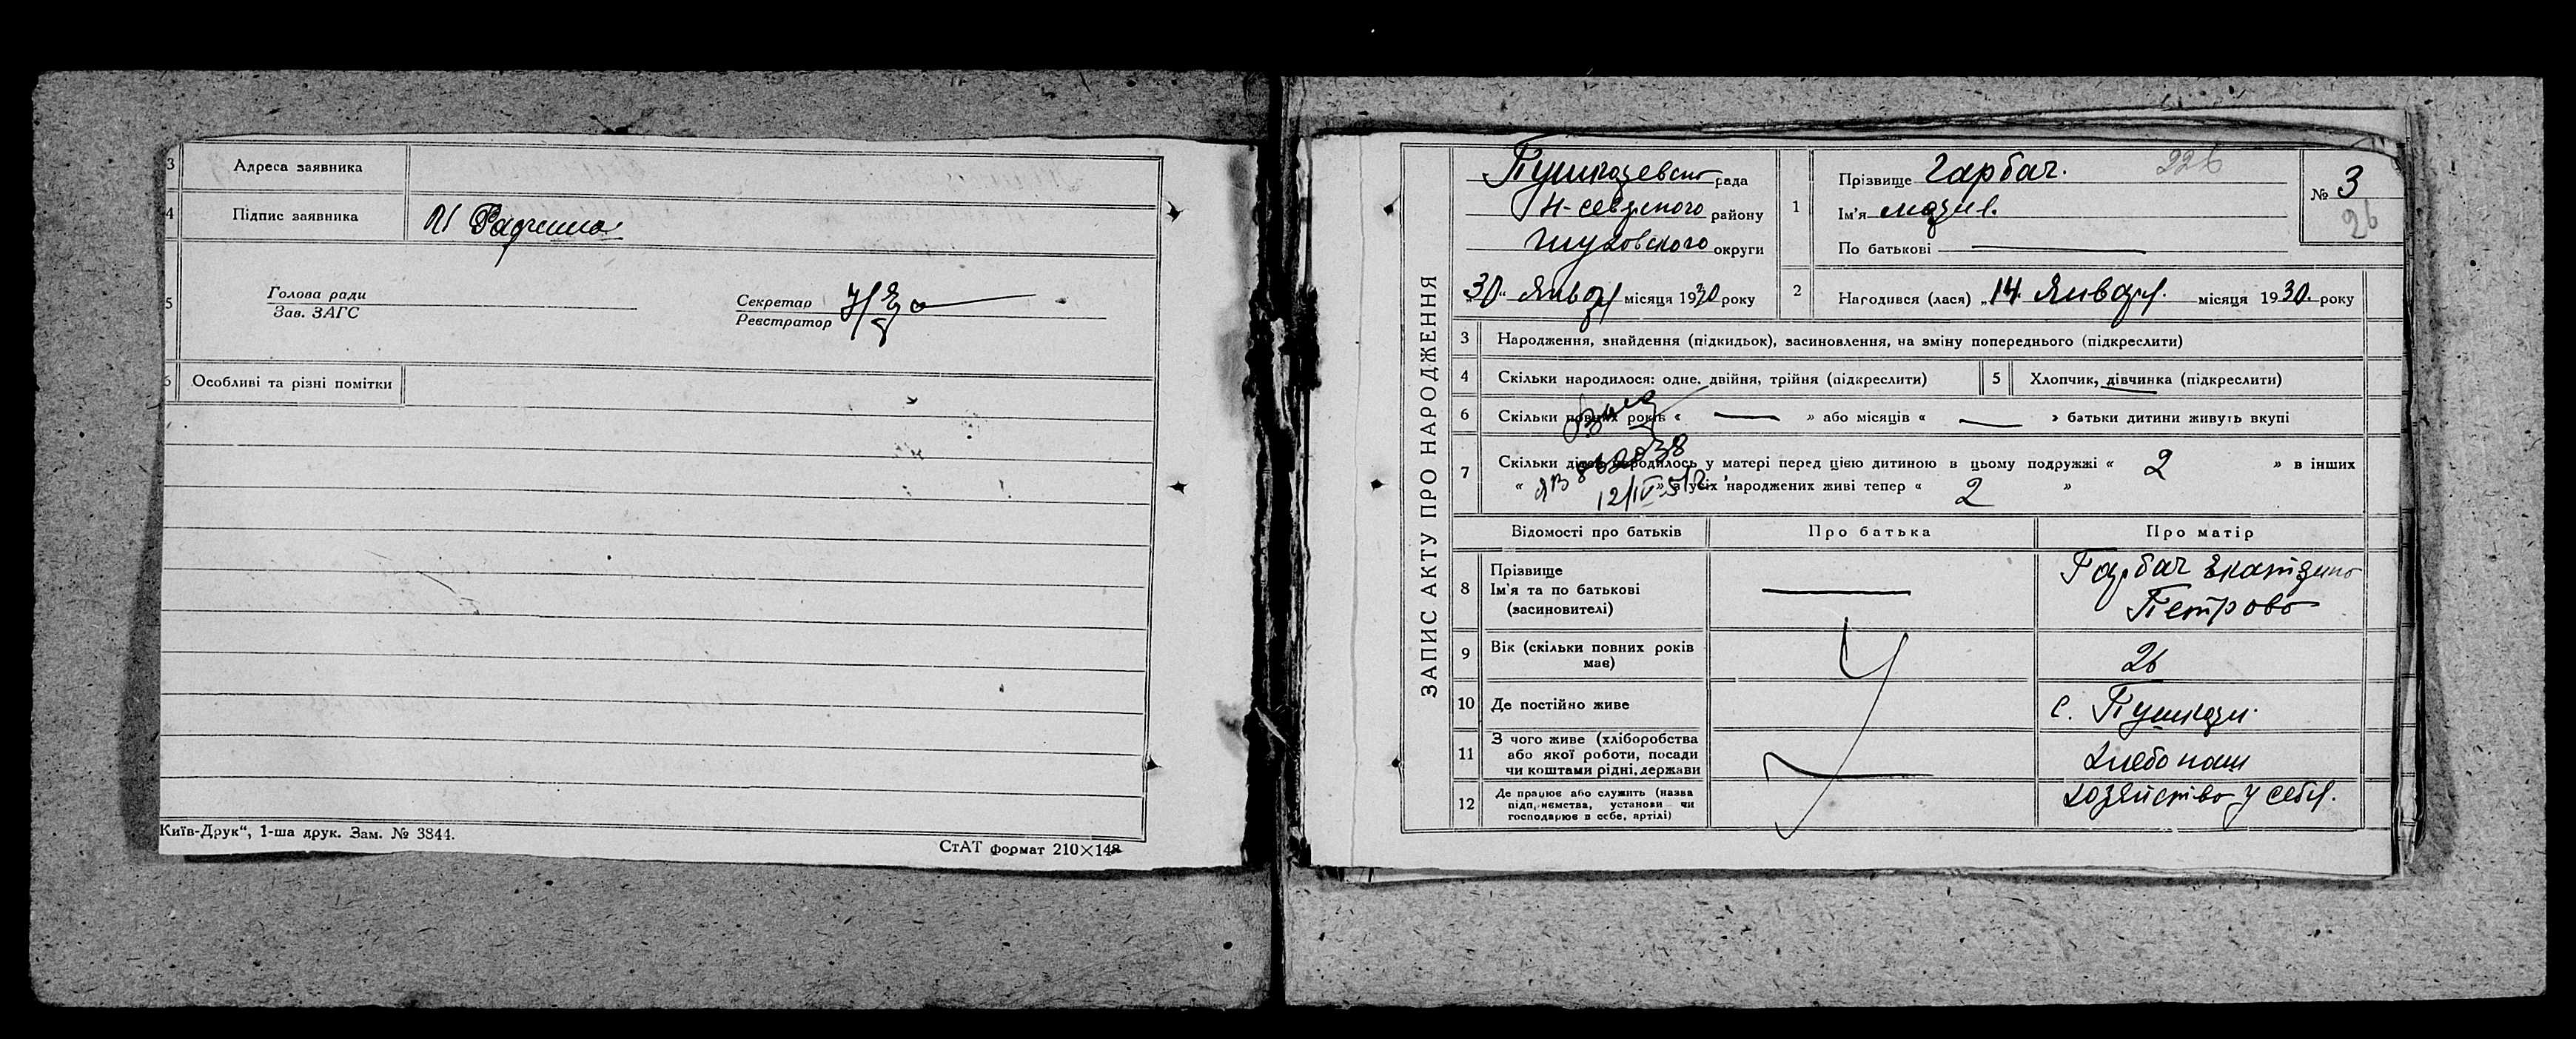 3 Адреса заявника
4 Підпис заявника
5 Голова ради
Зав. ЗАГС
Секретар
Реєстратор
6 Особливі та різні помітки
Київ-Друк“, 1-ша друк. Зам. № 3844.
СтАТ формат 210×148
ЗАПИС АКТУ ПРО НАРОДЖЕННЯ
рада
Н-Севзского району
Глуховского округи
„30“ Января місяця 1930 року
1 Прізвище Гарбач.
Ім'я Мария.
По батькові —
226
№ 3
26
2 Народився (лася) „14 Января. місяця 1930. року
3 Народження, знайдення (підкидьок), засиновлення, на зміну попереднього (підкреслити)
4 Скільки народилося: одне, двійня, трійня (підкреслити)
5 Хлопчик, дівчинка (підкреслити)
6 Скільки повних років « — » або місяців « — » батьки дитини живуть вкупі
7 Скільки дітей народилось у матері перед цією дитиною в цьому подружжі « 2 » в інших
« » з усіх народжених живі тепер « 2 »
ЯВ 862038
12/IV-51г.
Відомості про батьків
Про батька
Про матір
8 Прізвище
Ім'я та по батькові
(засиновителі)
—
Гарбач Екатірина
Петрова
9 Вік (скільки повних років
має)
26
10 Де постійно живе
с. Пушкари.
11 З чого живе (хліборобства
або якої роботи, посади
чи коштами рідні, держави
Хлебопаш
12 Де працює або служить (назва
підприємства, установи чи
господарює в себе, артілі)
Хозяйство у себя.